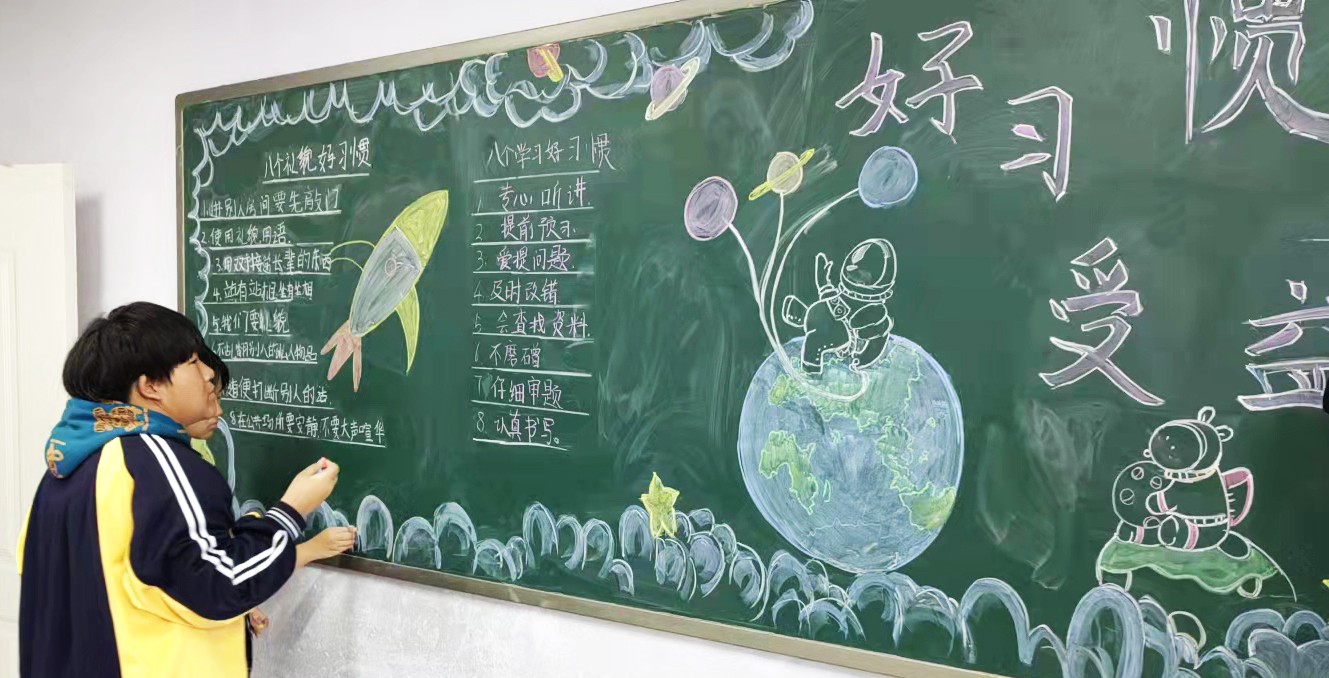 好习惯
受益
八个礼貌好习惯
1.进别人房间要先敲门
2.使用礼貌用语
3.用双手接 长辈的东西
4.站有站相坐有坐相
5.我们要礼貌
6. 用别人的私人物品
随便打断别人的话
8.在公共场所要安静,不要大声喧华
八个学习好习惯
1. 专心听讲.
2. 提前预习.
3. 爱提问题.
4. 及时改错
5. 会查找资料.
6. 不磨蹭
7. 仔细审题
8. 认真书写。